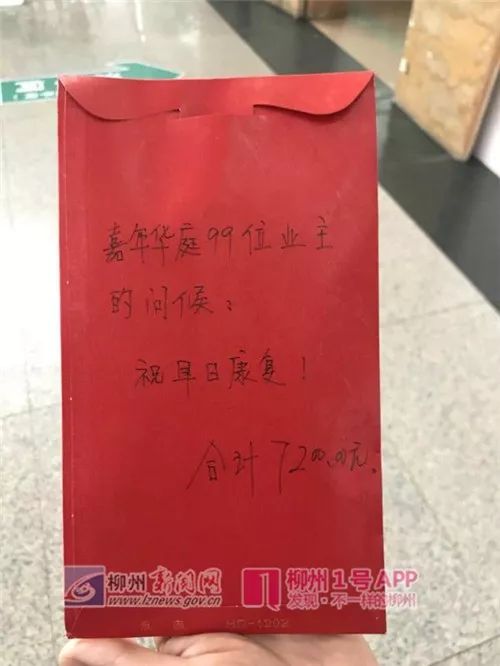 嘉年华庭99位业主
的问候:
祝早日康复!
合计7200.00元.
柳州新闻网
www.lznews.gov.cn
柳州1号APP
发现·不一样的柳州